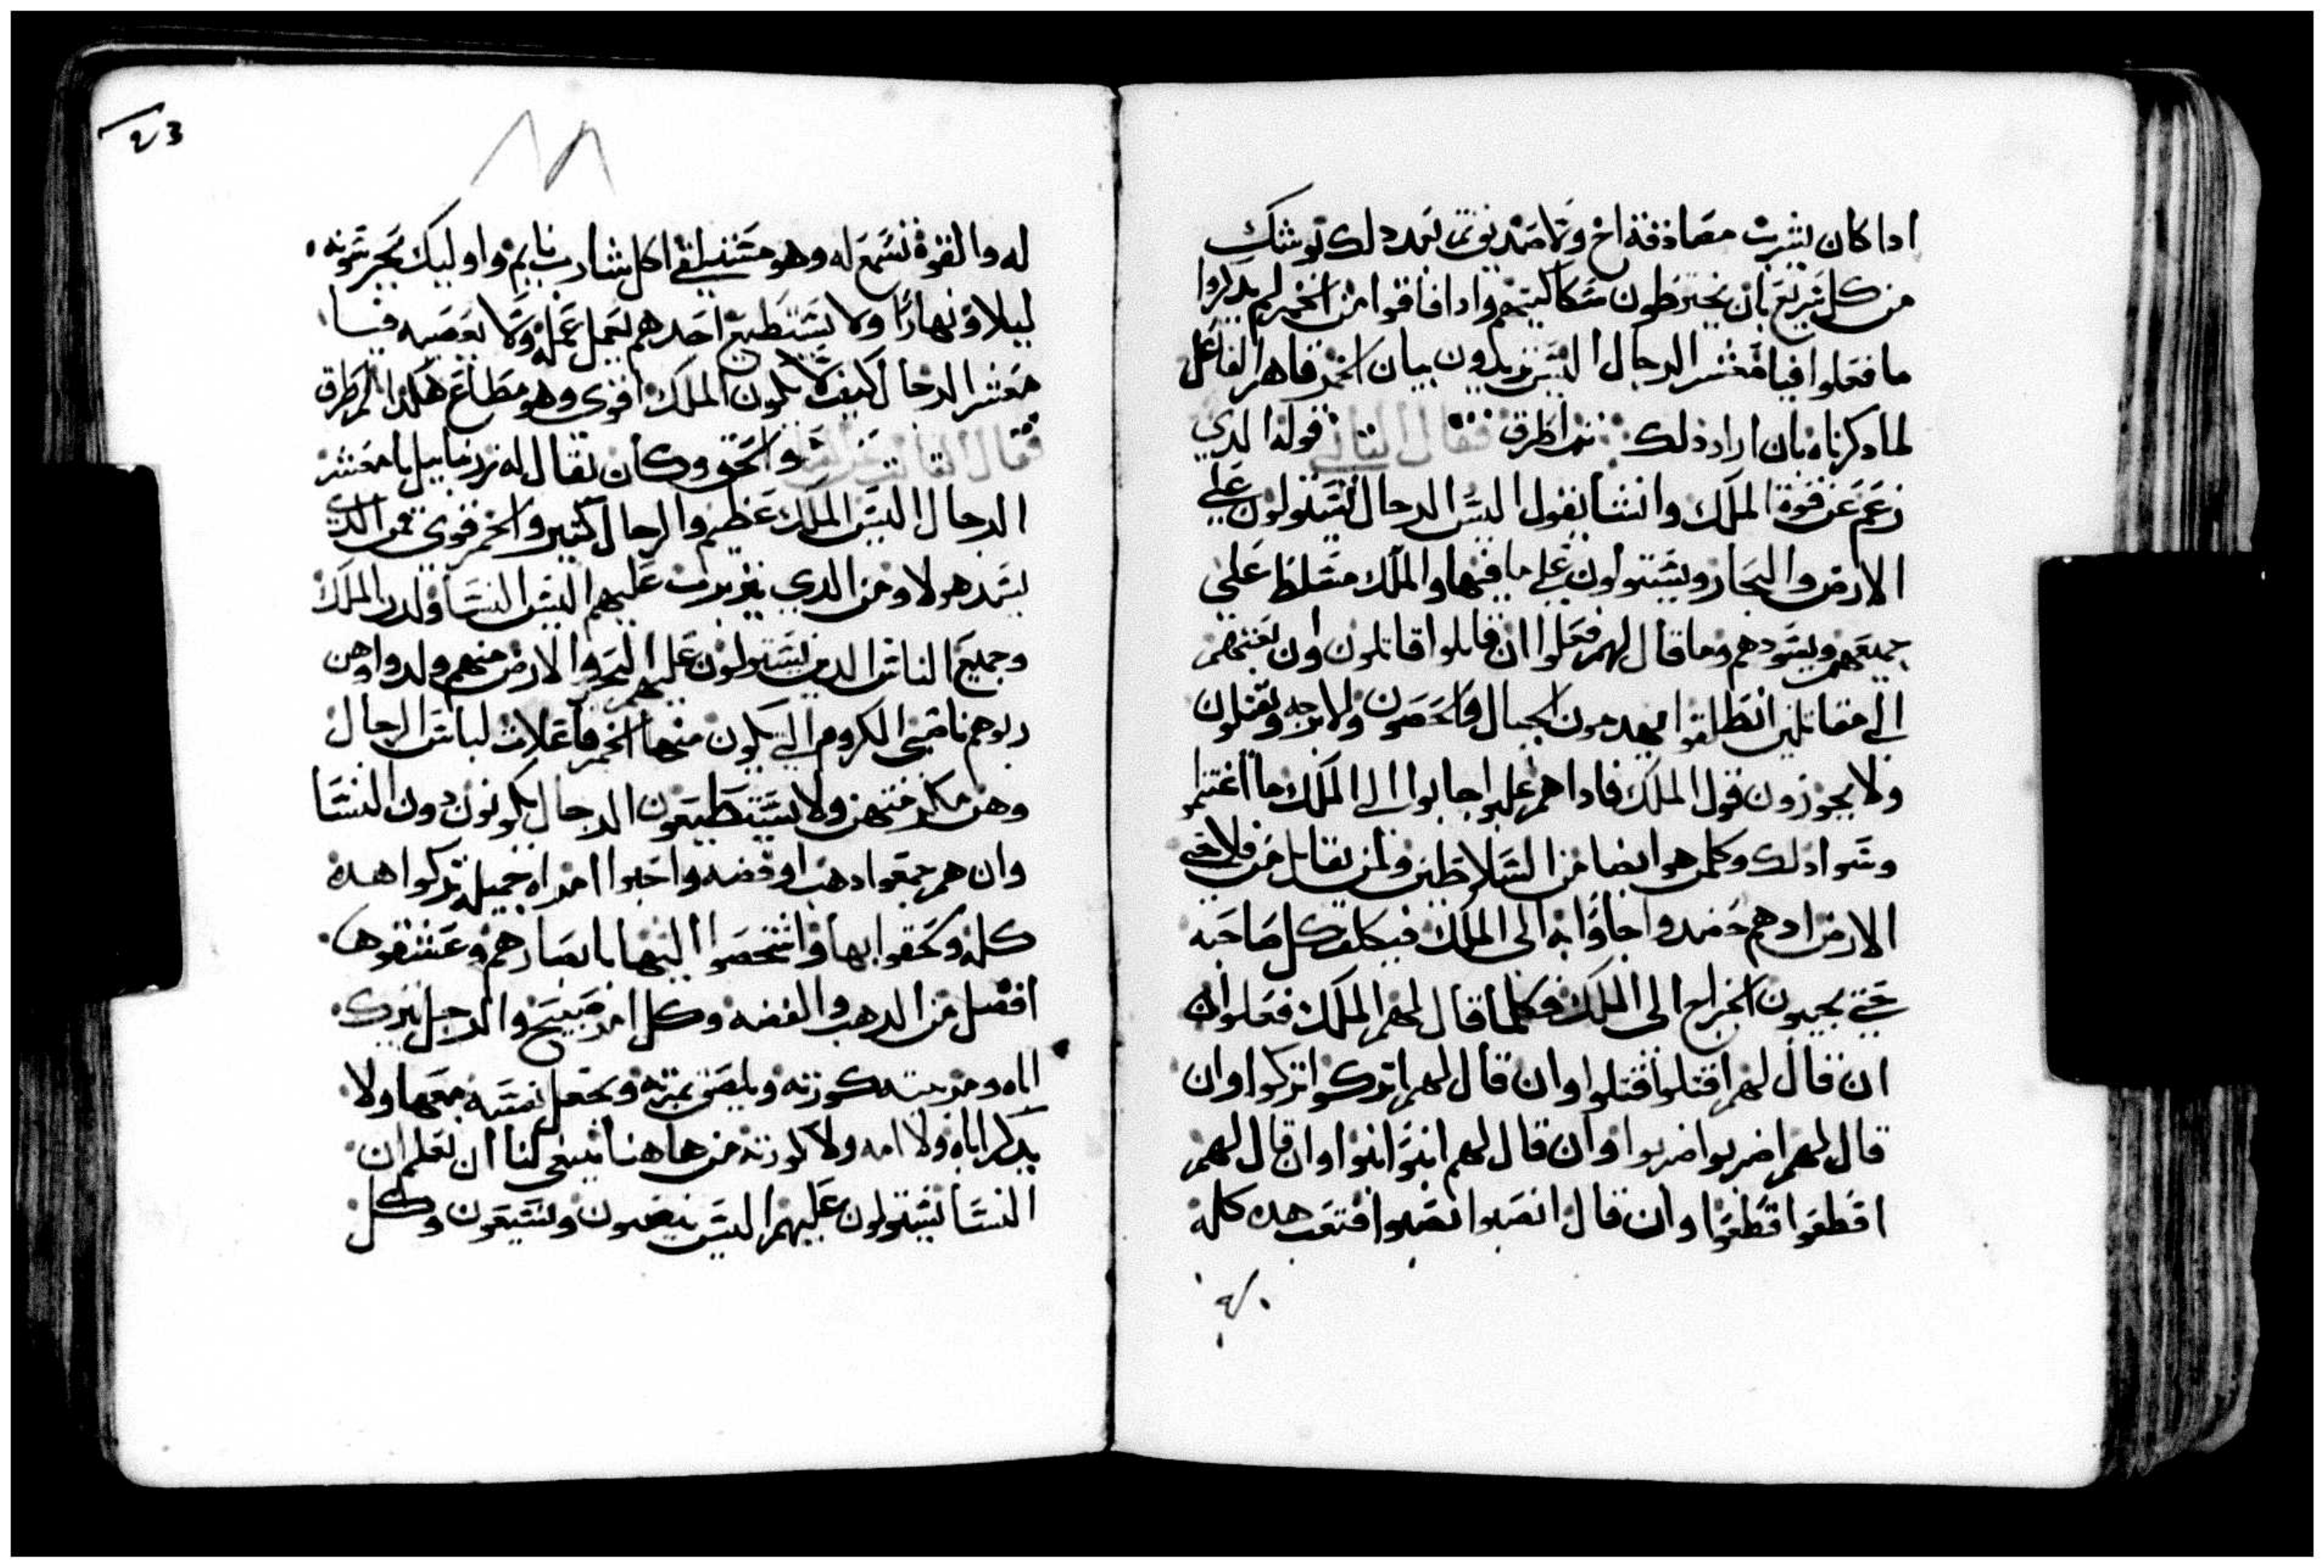 ادا كان يشرب مصادقة اخ ولا صديق بعد دلك توشك
من كل سريع بان يخترطون سكاكينهم وادا فاقوا من الخمر لم يدكروا
ما فعلوا فيا معشر الرجال اليس تريدون بيان الخمر قاهر الفاعل
لما دكرناه بان اراد دلك ثم اطرق فقال الثاني قوله الدي
زعم عن قوة الملك وانشا يقول اليس الرجال يستولون على
الارض والبحار ويستولون على ما فيها والملك مسلط على
جميعهم ويسودهم وما قال لهم فعلوا ان قاتلوا قاتلون وان بعثهم
الى مقاتلين انطلقوا يهدمون الجبال والحصون والابرجه ويقتلون
ولا يجوزون قول الملك فادا هم غلبوا جابوا الى الملك ما اغتنموا
وسوا دلك وكلمن هو ايضا من السلاطين ولمن يقاتل من فلاحي
الارض ادهم حصدوا جاوا به الى الملك فيكلف كل صاحبه
حتى يجيبون الخراج الى الملك وكلما قال لهم الملك فعلوا
ان قال لهم اقتلوا قتلوا وان قال لهم اتركوا تركوا وان
قال لهم اضربوا ضربوا وان قال لهم ابنوا ابنوا وان قال لهم
اقطعوا قطعوا وان قال انصبوا نصبوا فتعب هده كله
٤٣
٨٨
له والقوة تسمع له وهو مستلقي اكل شارب نايم واوليك يحرسونه
ليلا ونهارا ولا يستطيع احدهم يعمل عمله ولا يعصيه فيا
معشر الرجال كيف لا يكون الملك اقوى وهو مطاع هكدا ثم اطرق
فقال الثالث والحق وكان يقال له زربابيل يا معشر
الرجال اليس الملك عظيم والرجال كثير والخمر قوي فمن الدي
يسد هولا ومن الدي عليهم اليس النسا ولدن الملك
وجميع الناس الدين يستولون على البحر والارض منهم ولدوا وهن
ربوهم ناصبي الكروم الي يكون منها الخمر فاعلات لباس الرجال
وهن ولا يستطيعون الرجال يكونون دون النسا
وان هم جمعوا دهب او فضه واحبوا امراه جميله تركوا هده
كله ولحقوا بها وشخصوا اليها بابصارهم وعشقوها
افضل من الدهب والفضه وكل امر صبيح والرجل يترك
اباه ومن كورته ويلصق بمرته ويجعل نفسه معها ولا
يدكر اباه ولا امه ولا كورته من هاهنا ينبغي لنا ان نعلم ان
النسا يستولون عليهم اليس ينصبون ويتعبون وكل